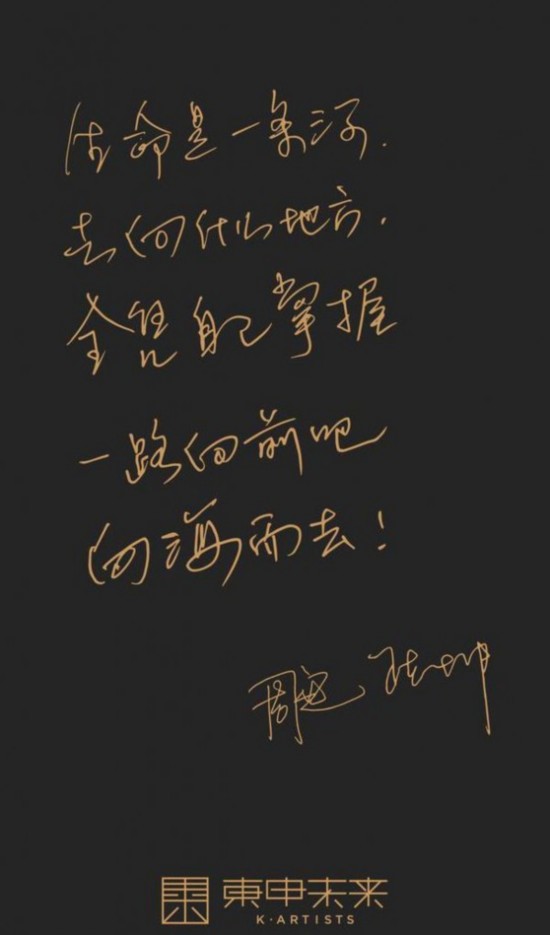 生命是一条河.
去向什么地方.
全凭自己掌握
一路向前吧
向海而去!
周迅 陈坤
東申未来
K·ARTISTS